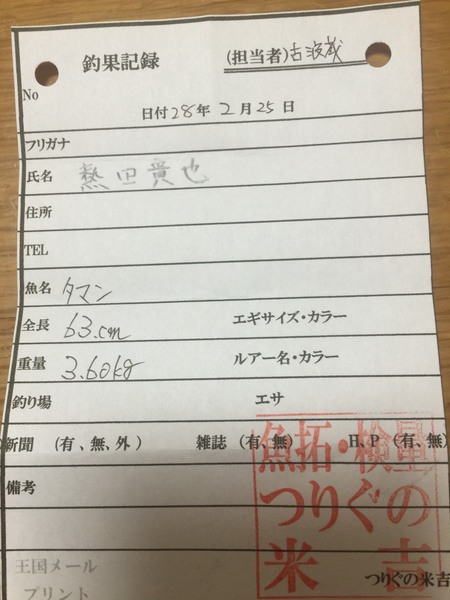 釣果記録 (担当者)古波蔵
No
日付28年2月25日
フリガナ
氏名 熱田貴也
住所
TEL
魚名 タマン
全長 63.cm エギサイズ・カラー
重量 3.60kg ルアー名・カラー
釣り場 エサ
新聞 (有、無、外) 雑誌(有、無) H、P(有、無)
備考
魚拓・検量
つりぐの
米吉
つりぐの米吉
王国メール
プリント